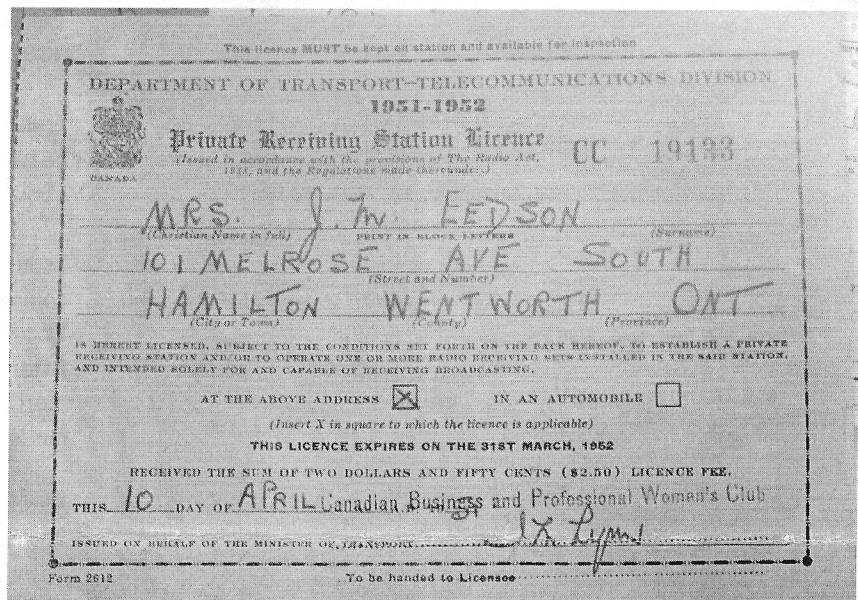 This licence MUST be kept on station and available for inspection
DEPARTMENT OF TRANSPORT—TELECOMMUNICATIONS DIVISION
1951-1952
Private Receiving Station Licence CC 19133
(Issued in accordance with the provisions of The Radio Act,
1938, and the Regulations made thereunder.)
CANADA
MRS. J. M. EEDSON
(Christian Name in full) PRINT IN BLOCK LETTERS (Surname)
101 MELROSE AVE SOUTH
(Street and Number)
HAMILTON WENTWORTH ONT
(City or Town) (County) (Province)
IS HEREBY LICENSED, SUBJECT TO THE CONDITIONS SET FORTH ON THE BACK HEREOF, TO ESTABLISH A PRIVATE
RECEIVING STATION AND/OR TO OPERATE ONE OR MORE RADIO RECEIVING SETS INSTALLED IN THE SAID STATION,
AND INTENDED SOLELY FOR AND CAPABLE OF RECEIVING BROADCASTING.
AT THE ABOVE ADDRESS X IN AN AUTOMOBILE
(Insert X in square to which the licence is applicable)
THIS LICENCE EXPIRES ON THE 31ST MARCH, 1952
RECEIVED THE SUM OF TWO DOLLARS AND FIFTY CENTS ($2.50) LICENCE FEE.
THIS 10 DAY OF APRIL Canadian Business and Professional Women's Club 51
ISSUED ON BEHALF OF THE MINISTER OF TRANSPORT
Form 2612 To be handed to Licensee